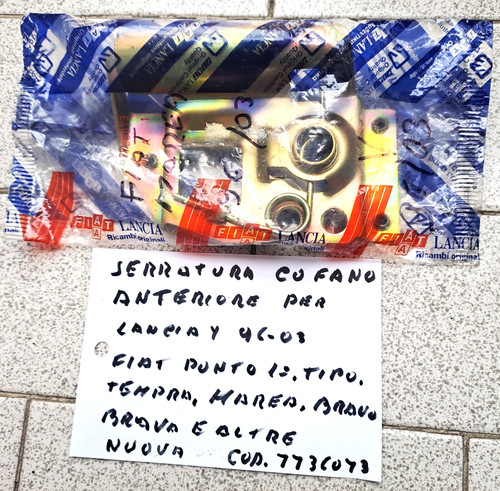 LANCIA
FIAT
96
103
FIAT LANCIA
Ricambi originali
FIAT LANCIA
FIAT LANCIA
Ricambi originali
SERRATURA COFANO
ANTERIORE PER
LANCIA Y 96-03
FIAT PUNTO 1S. TIPO.
TEMPRA, MAREA. BRAVO
BRAVA E ALTRE
NUOVA COD. 7736073